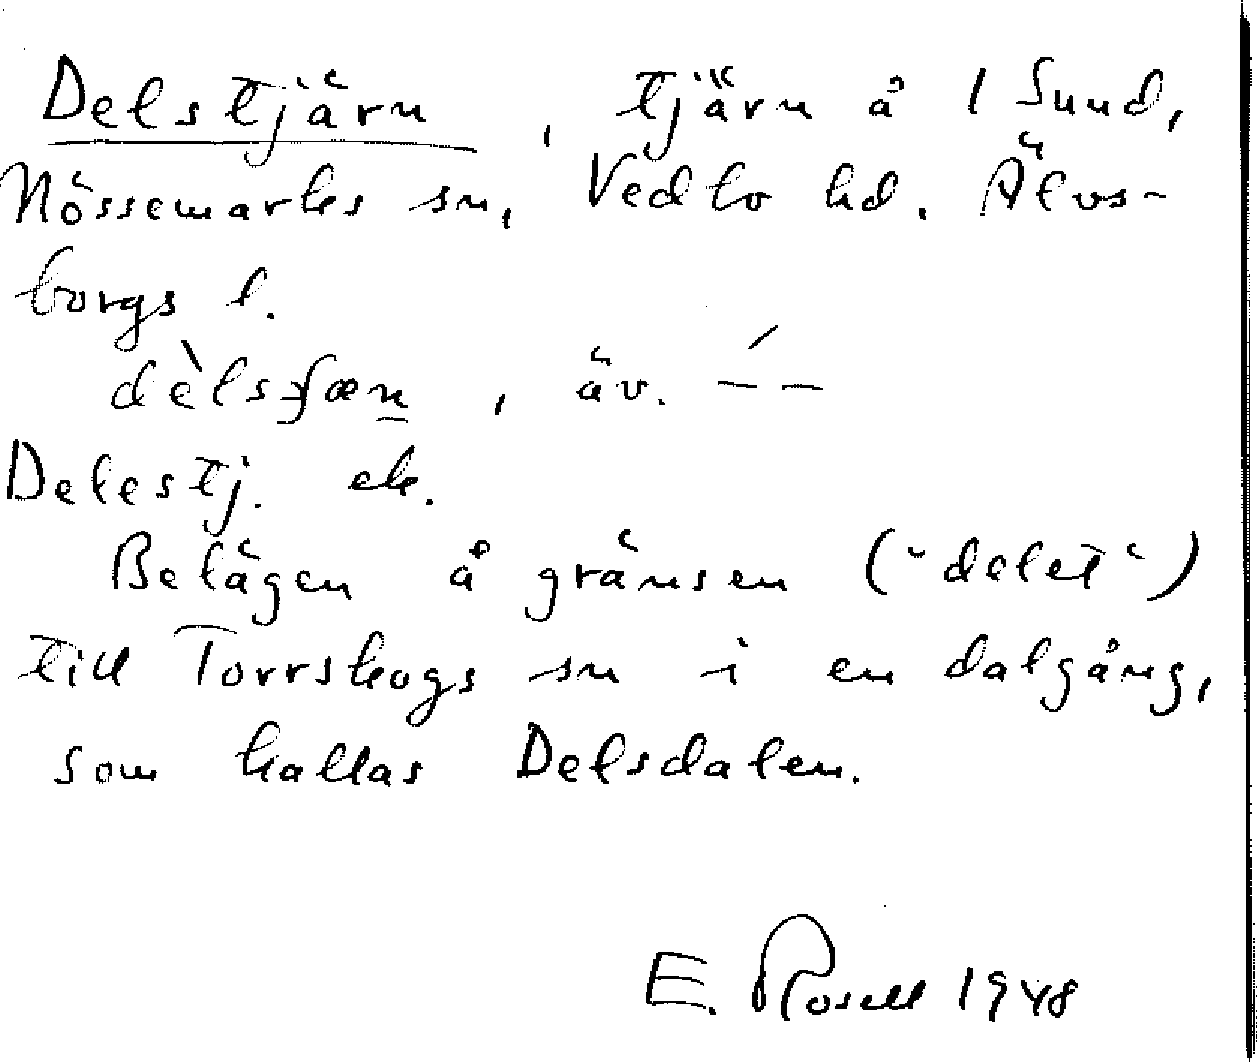 Delstjärn, tjärn å 1 Sund,
Nössemarks sn, Vedbo hd. Älvs-
borgs l.
dèlsʃæn, äv. –́ –
Delestj. ek.
Belägen å gränsen ("delet")
till Torrskogs sn i en dalgång,
som kallas Delsdalen.
E. Rosell 1948